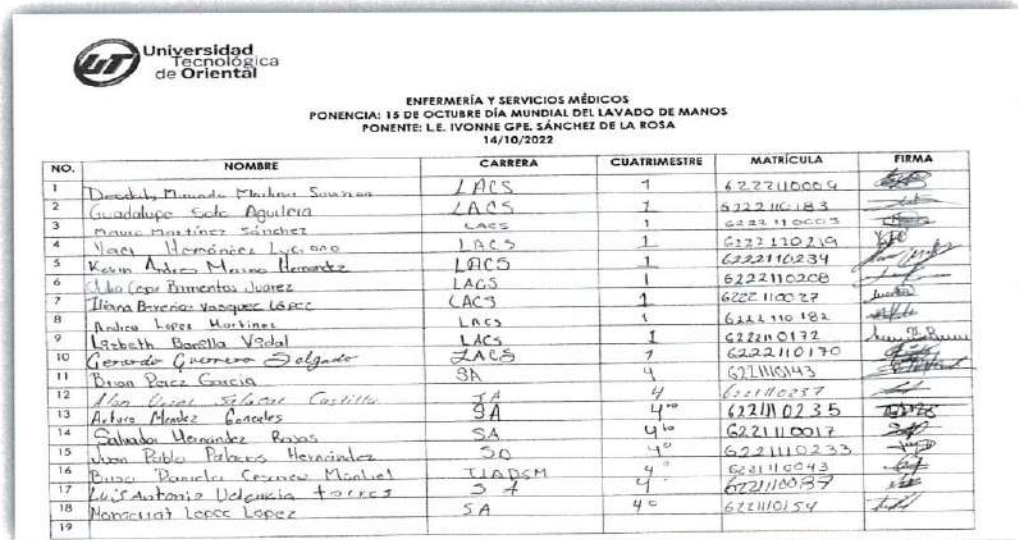 UT Universidad
Tecnológica
de Oriental
ENFERMERÍA Y SERVICIOS MÉDICOS
PONENCIA: 15 DE OCTUBRE DÍA MUNDIAL DEL LAVADO DE MANOS
PONENTE: L.E. IVONNE GPE. SÁNCHEZ DE LA ROSA
14/10/2022
NO. NOMBRE CARRERA CUATRIMESTRE MATRÍCULA FIRMA
1 LACS 1 6222110009
2 Guadalupe Soto Aguilera LACS 1 6222110183
3 Mauro Martínez Sánchez LACS 1
4 Luciano LACS 1 6222110219
5 Kevin Andres Merino Hernandez LACS 1 6222110234
6 Julio Cepr Barrientos Juarez LACS 1 6222110208
7 Iliana Berenice Vasquez López LACS 1 6222110027
8 Andrea Lopez Martinez LACS 1 6222110182
9 Lizbeth Bonilla Vidal LACS 1 6222110172
10 Gerardo Guerrero Salgado LACS 1 6222110170
11 Brian Perez Garcia SA 4 6221110143
12 Alan Salazar Castillo 4 6221110237
13 Arturo Mendez Gonzales SA 4to 6221110235
14 Salvador Hernández Rojas SA 4to 6221110017
15 Juan Pablo Palacios Hernández 4° 6221110233
16 Daniela TIADSM 4°
17 Luis Antonio Valencia torres SA 4°
18 Monserrat Lopez Lopez SA 4° 6221110154
19